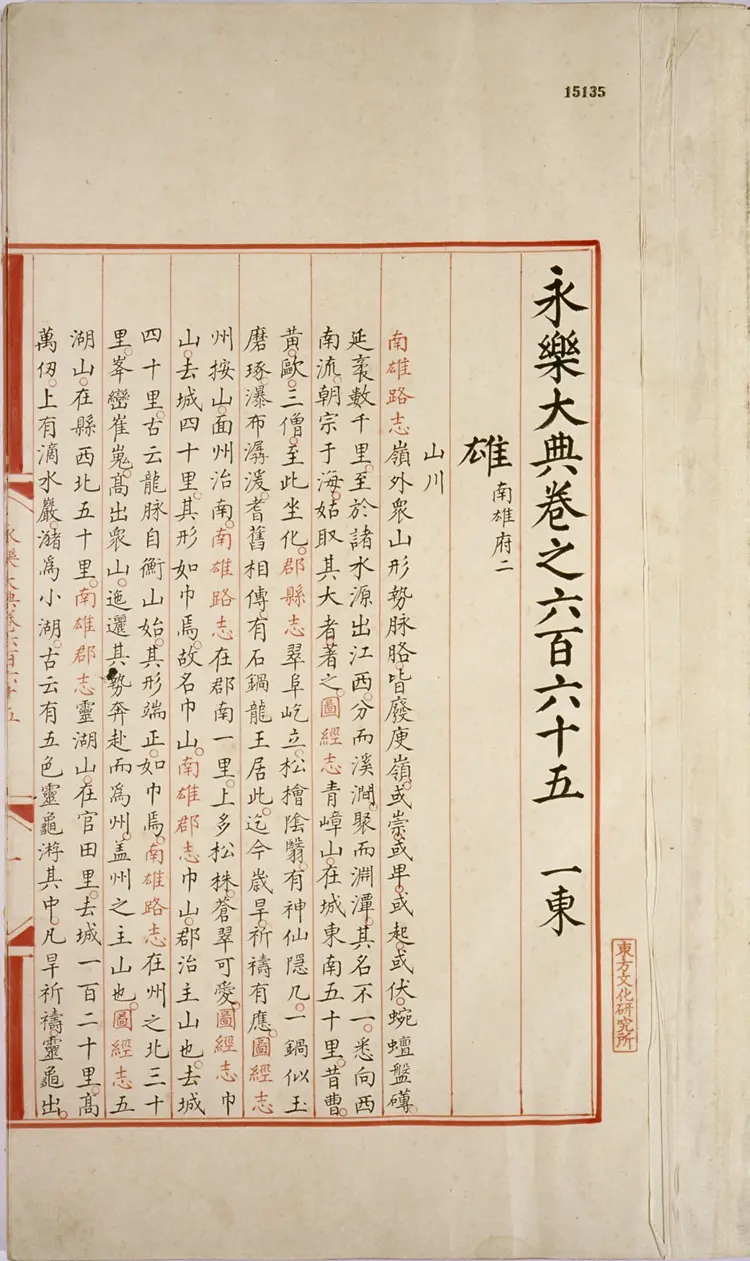 15135
永樂大典卷之六百六十五 一東
雄 南雄府二
山川
南雄路志嶺外衆山形勢脉胳皆廢庾嶺或崇或卑或起或伏蜿蟺盤礡
延袤數千里至於諸水源出江西分而溪澗聚而淵潭其名不一悉向西
南流朝宗于海姑取其大者著之圖經志青嶂山在城東南五十里昔曹
黃歐三僧至此坐化郡縣志翠阜屹立松檜陰翳有神仙隱几一鍋似玉
磨琢瀑布潺湲耆舊相傳有石鍋龍王居此迄今歲旱祈禱有應圖經志
州按山面州治南南雄路志在郡南一里上多松株蒼翠可愛圖經志巾
山去城四十里其形如巾焉故名巾山南雄郡志巾山郡治主山也去城
四十里古云龍脉自衡山始其形端正如巾焉南雄路志在州之北三十
里峯巒崔嵬高出衆山迤邐其勢奔赴而爲州盖州之主山也圖經志五
湖山在縣西北五十里南雄郡志靈湖山在官田里去城一百二十里高
萬仞上有滴水巖瀦爲小湖古云有五色靈龜游其中凡旱祈禱靈龜出
東方文化研究所
永樂大典卷六百六十五
一